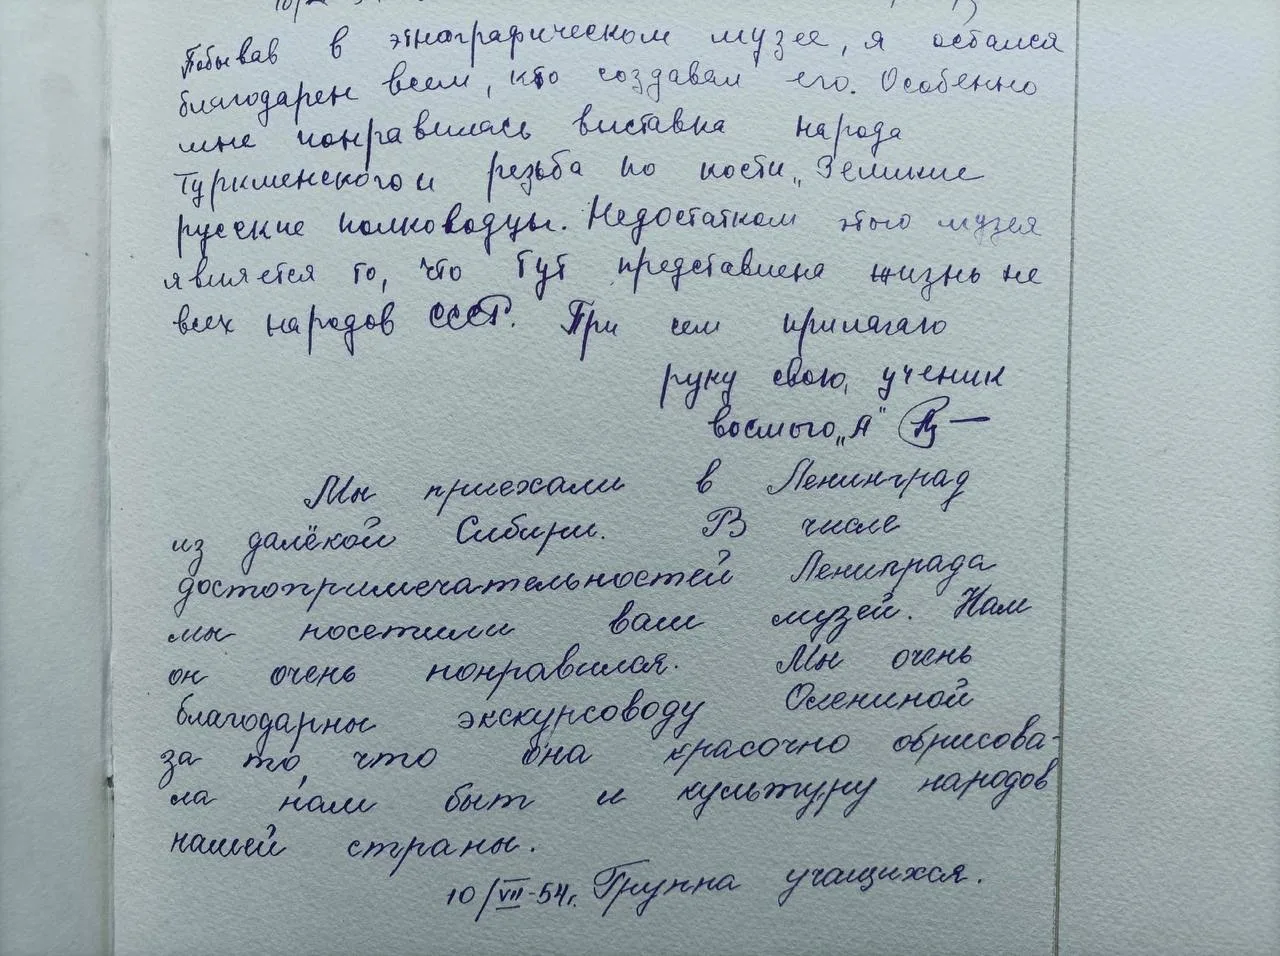 Побывав в этнографическом музее, я остался
благодарен всем, кто создавал его. Особенно
мне понравилась виставка народа
Туркменского и резьба по кости „Великие
русские полководцы. Недостатком этого музея
является то, что тут представлена жизнь не
всех народов СССР. При сем прилагаю
руку свою, ученик
восмыго „А"
Мы приехали в Ленинград
из далёкой Сибири. В числе
достопримечательностей Ленинграда
мы посетили ваш музей. Нам
он очень понравился. Мы очень
благодарны экскурсоводу Олениной
за то, что она красочно обрисова-
ла нам быт и культуру народов
нашей страны.
10/VII-54г. Группа учащихся.